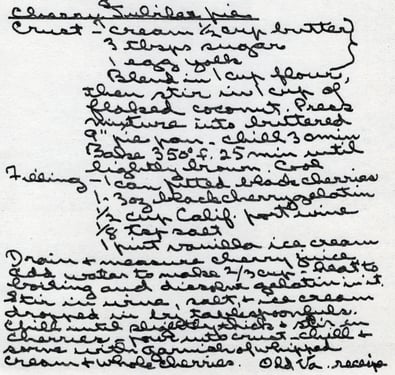 Cherry Jubilee pie
Crust - cream 1/2 cup butter
3 tbsps sugar
1 egg yolk
Blend in 1 cup flour,
then stir in 1 cup of
flaked coconut. Press
mixture into buttered
9" pie pan - chill 30 min
Bake 350° f. 25 min until
lightly brown. Cool
Filling - 1 can pitted black cherries
1 - 3 oz black cherry gelatin
1/2 cup Calif. port wine
1/8 tsp salt
1 pint vanilla ice cream
Drain & measure cherry juice
add water to make 2/3 cup - heat to
boiling and dissolve gelatin in it.
Stir in wine, salt, & ice cream
dropped in by tablespoonfuls.
Chill until slightly thick & stir in
cherries, pour into crust - chill &
serve with garnish of whipped
cream & whole cherries. Old Va. receipe